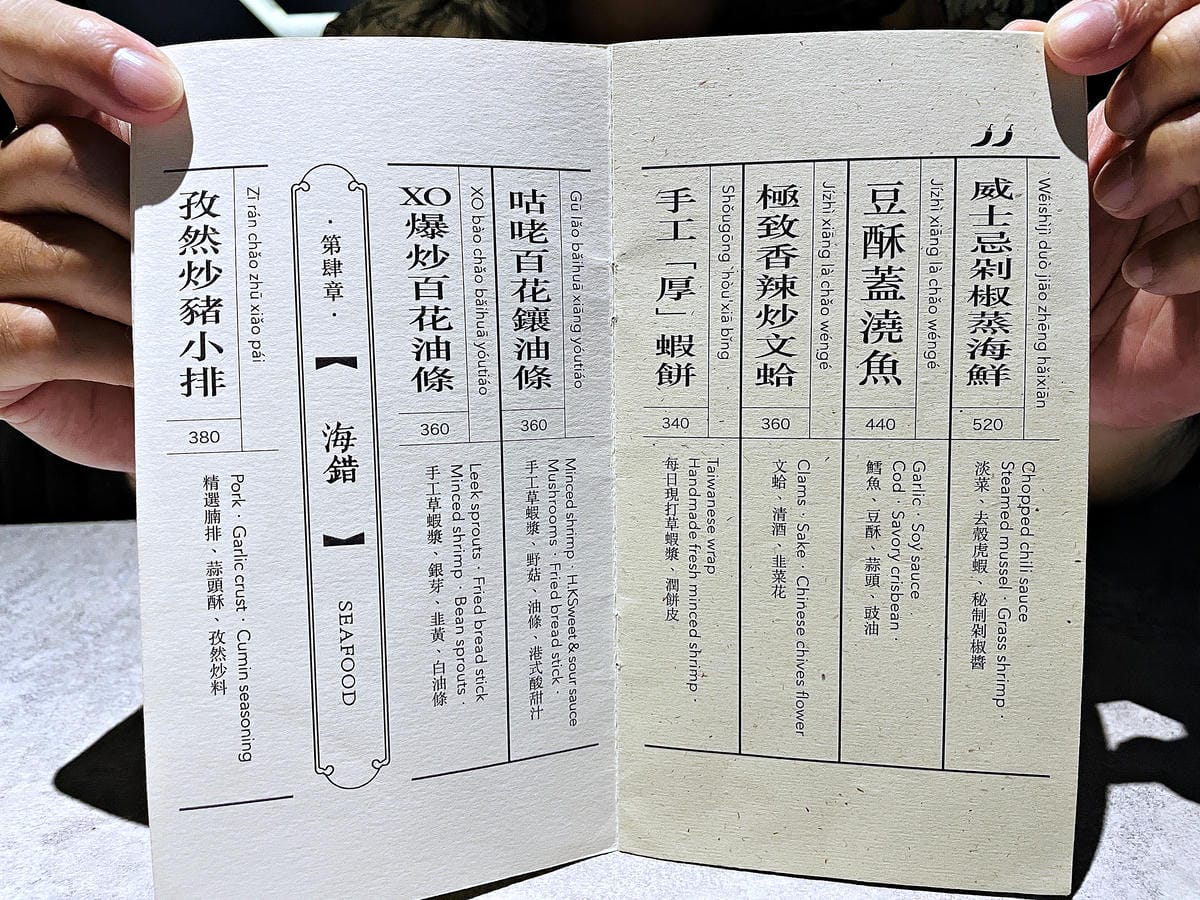 Wéishìjì duò jiāo zhēng hǎixiān
威士忌剁椒蒸海鮮
520
Chopped chili sauce
Steamed mussel · Grass shrimp ·
淡菜、去殼虎蝦、秘制剁椒醬
Jízhì xiāng là chǎo wéngé
豆酥蓋澆魚
440
Garlic · Soy sauce
Cod · Savory crisbean ·
鱈魚、豆酥、蒜頭、豉油
Jízhì xiāng là chǎo wéngé
極致香辣炒文蛤
360
Clams · Sake · Chinese chives flower
文蛤、清酒、韭菜花
Shǒugōng "hòu"xiā bǐng
手工「厚」蝦餅
340
Taiwanese wrap
Handmade fresh minced shrimp ·
每日現打草蝦漿、潤餅皮
Gū lǎo bǎihuā xiāng yóutiáo
咕咾百花鑲油條
360
Minced shrimp · H.KSweet & sour sauce
Mushrooms · Fried bread stick ·
手工草蝦漿、野菇、油條、港式酸甜汁
XO bào chǎo bǎihuā yóutiáo
XO爆炒百花油條
360
Leek sprouts · Fried bread stick
Minced shrimp · Bean sprouts ·
手工草蝦漿、銀芽、韭黃、白油條
·第肆章·
【海錯】
SEAFOOD
Zī rán chǎo zhū xiǎo pái
孜然炒豬小排
380
Pork · Garlic crust · Cumin seasoning
精選腩排、蒜頭酥、孜然炒料